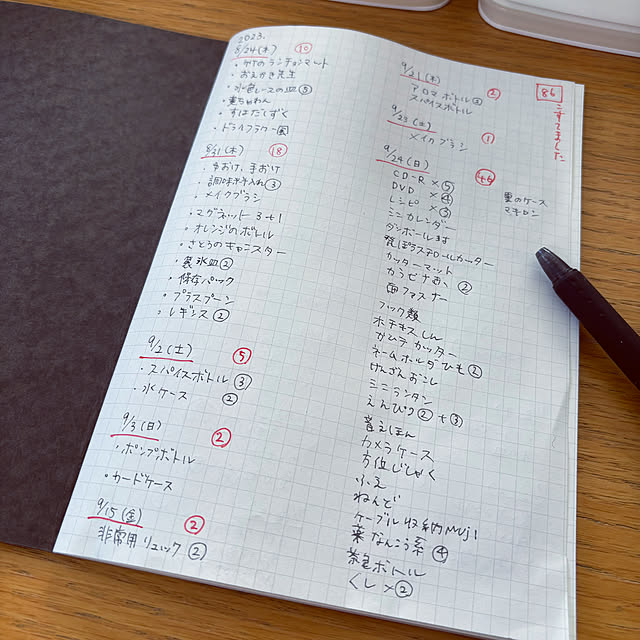 2023.
8/24(木) ⑩
・竹のランチョンマット
・おえかき先生
・水色レースの皿⑤
・重ちわん
・すはだしずく
・ドライフラワー
8/31(木) ⑱
・手おけ、まおけ
・調味料入れ③
・メイクブラシ
・マグネット3+1
・オレンジのボトル
・さとうのキャニスター
・裏氷皿②
・保存パック
・プラスプーン
・レギンス②
9/2(土) ⑤
・スパイスボトル③
・水ケース ②
9/3(日) ②
・ポンプボトル
・カードケース
9/15(金) ②
非常用リュック②
9/21(木) ②
アロマボトル
スパイスボトル
9/23(土) ①
メイクブラシ
9/24(日) 46
CD-R×⑤
DVD ×④
レシピ ×③
ミニカレンダー
ダンボール
発ぽうスチロールカッター
カッターマット
カラビナ ②
ファスナー
フック類
ホチキスしん
ガムテカッター
ネームホルダひも②
けんざんおこし
ミニランタン
えんぴつ②+③
音えほん
カメラケース
方位じしゃく
ふえ
ねんど
ケーブル収納MUJI
薬なんこう系④
茶色ボトル
くし×②
86
こすてました
黒のケース
マキロン